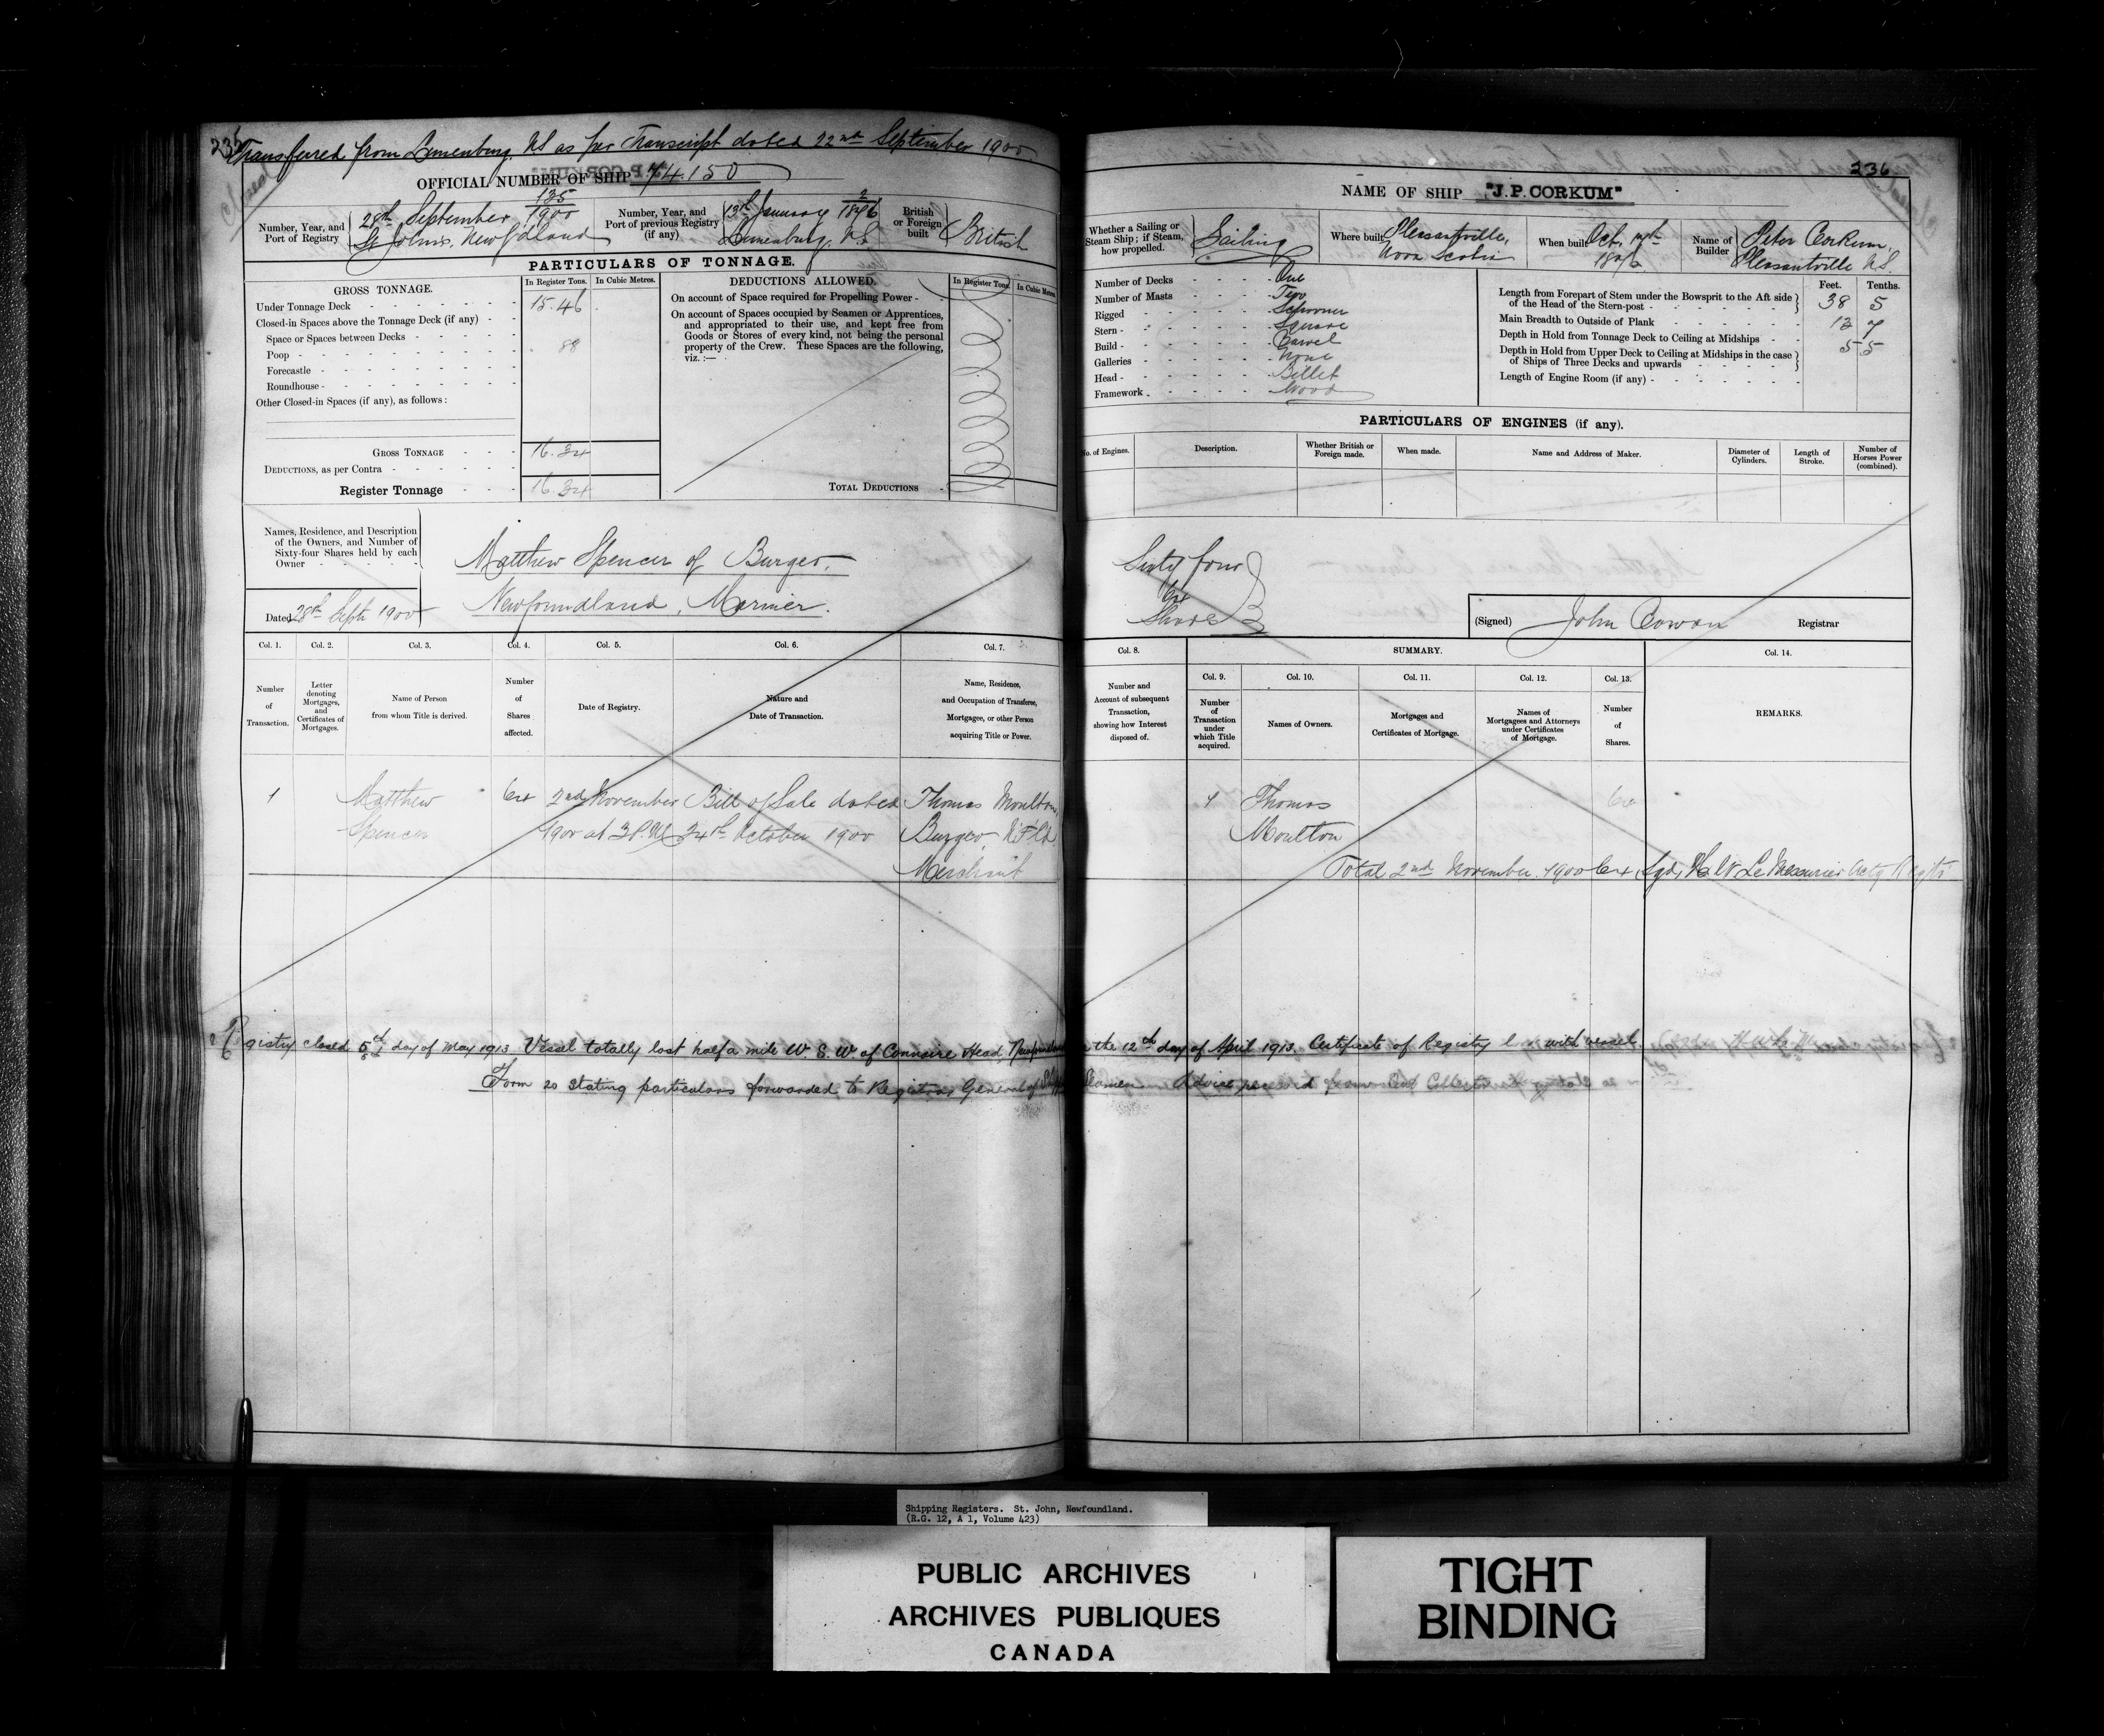 235
Transferred from Lunenburg, NS as per Transcript dated 22nd September 1900
Closed
OFFICIAL NUMBER OF SHIP 74.150
Number, Year, and Port of Registry
135
28th September 1900
St John's, Newfdland
Number, Year, and Port of previous Registry (if any)
2
13th January 1876
Lunenburg, N.S.
British or Foreign built
British
PARTICULARS OF TONNAGE.
GROSS TONNAGE.
In Register Tons.
In Cubic Metres.
Under Tonnage Deck 15.46
Closed-in Spaces above the Tonnage Deck (if any)
Space or Spaces between Decks
Poop .88
Forecastle
Roundhouse
Other Closed-in Spaces (if any), as follows:
GROSS TONNAGE 16.34
DEDUCTIONS, as per Contra
Register Tonnage 16.34
DEDUCTIONS ALLOWED.
In Register Tons.
In Cubic Metres.
On account of Space required for Propelling Power
On account of Spaces occupied by Seamen or Apprentices,
and appropriated to their use, and kept free from
Goods or Stores of every kind, not being the personal
property of the Crew. These Spaces are the following,
viz.:—
TOTAL DEDUCTIONS
Names, Residence, and Description
of the Owners, and Number of
Sixty-four Shares held by each
Owner
Dated 28th Sept 1900
Matthew Spencer of Burgeo.
Newfoundland, Mariner.
Col. 1.
Col. 2.
Col. 3.
Col. 4.
Col. 5.
Col. 6.
Col. 7.
Number of Transaction.
Letter denoting Mortgages, and Certificates of Mortgages.
Name of Person from whom Title is derived.
Number of Shares affected.
Date of Registry.
Nature and Date of Transaction.
Name, Residence, and Occupation of Transferee, Mortgagee, or other Person acquiring Title or Power.
1 Matthew 64 2nd November Bill of Sale dated Thomas Moulton,
Spencer 1900 at 3 P.M. 24th October 1900 Burgeo, N.F'ld.
Merchant
236
NAME OF SHIP "J. P. CORKUM"
Whether a Sailing or Steam Ship; if Steam, how propelled.
Sailing
Where built
Pleasantville,
Nova Scotia
When built
Oct.
Name of Builder
Peter Corkum,
Pleasantville N.S.
Number of Decks One
Number of Masts Two
Rigged Schooner
Stern Square
Build Carvel
Galleries None
Head Billet
Framework Wood
Feet. Tenths.
Length from Forepart of Stem under the Bowsprit to the Aft side
of the Head of the Stern-post 38 5
Main Breadth to Outside of Plank 7
Depth in Hold from Tonnage Deck to Ceiling at Midships 5 5
Depth in Hold from Upper Deck to Ceiling at Midships in the case
of Ships of Three Decks and upwards
Length of Engine Room (if any)
PARTICULARS OF ENGINES (if any).
No. of Engines.
Description.
Whether British or Foreign made.
When made.
Name and Address of Maker.
Diameter of Cylinders.
Length of Stroke.
Number of Horses Power (combined).
Sixty four
64
Shares
(Signed) John Cowan Registrar
Col. 8.
SUMMARY.
Col. 14.
Col. 9.
Col. 10.
Col. 11.
Col. 12.
Col. 13.
Number and Account of subsequent Transaction, showing how Interest disposed of.
Number of Transaction under which Title acquired.
Names of Owners.
Mortgages and Certificates of Mortgage.
Names of Mortgagees and Attorneys under Certificates of Mortgage.
Number of Shares.
REMARKS.
1 Thomas 64
Moulton
Total 2nd November 1900 64 Sgd, H W LeMessurier Actg Regstr
Registry closed 5th day of May 1913. Vessel totally lost half a mile W. S. W of Connaire Head, Newfoundland on the 12th day of April 1913. Certificate of Registry lost with vessel.
Form 20 stating particulars forwarded to Registrar General of Shipping & Seamen. Advice received from
Shipping Registers. St. John, Newfoundland.
(R.G. 12, A 1, Volume 423)
PUBLIC ARCHIVES
ARCHIVES PUBLIQUES
CANADA
TIGHT
BINDING